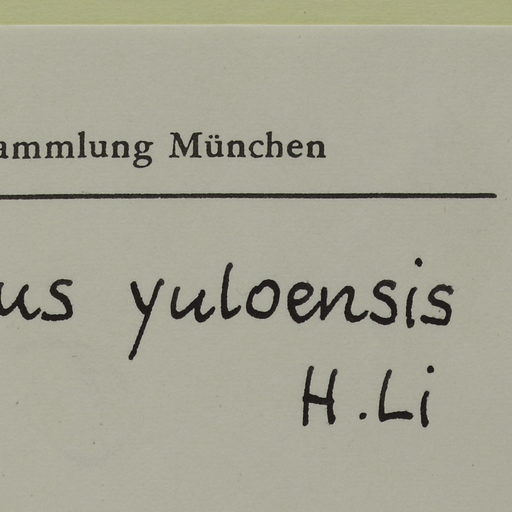 ammlung München
us yuloensis
H.Li